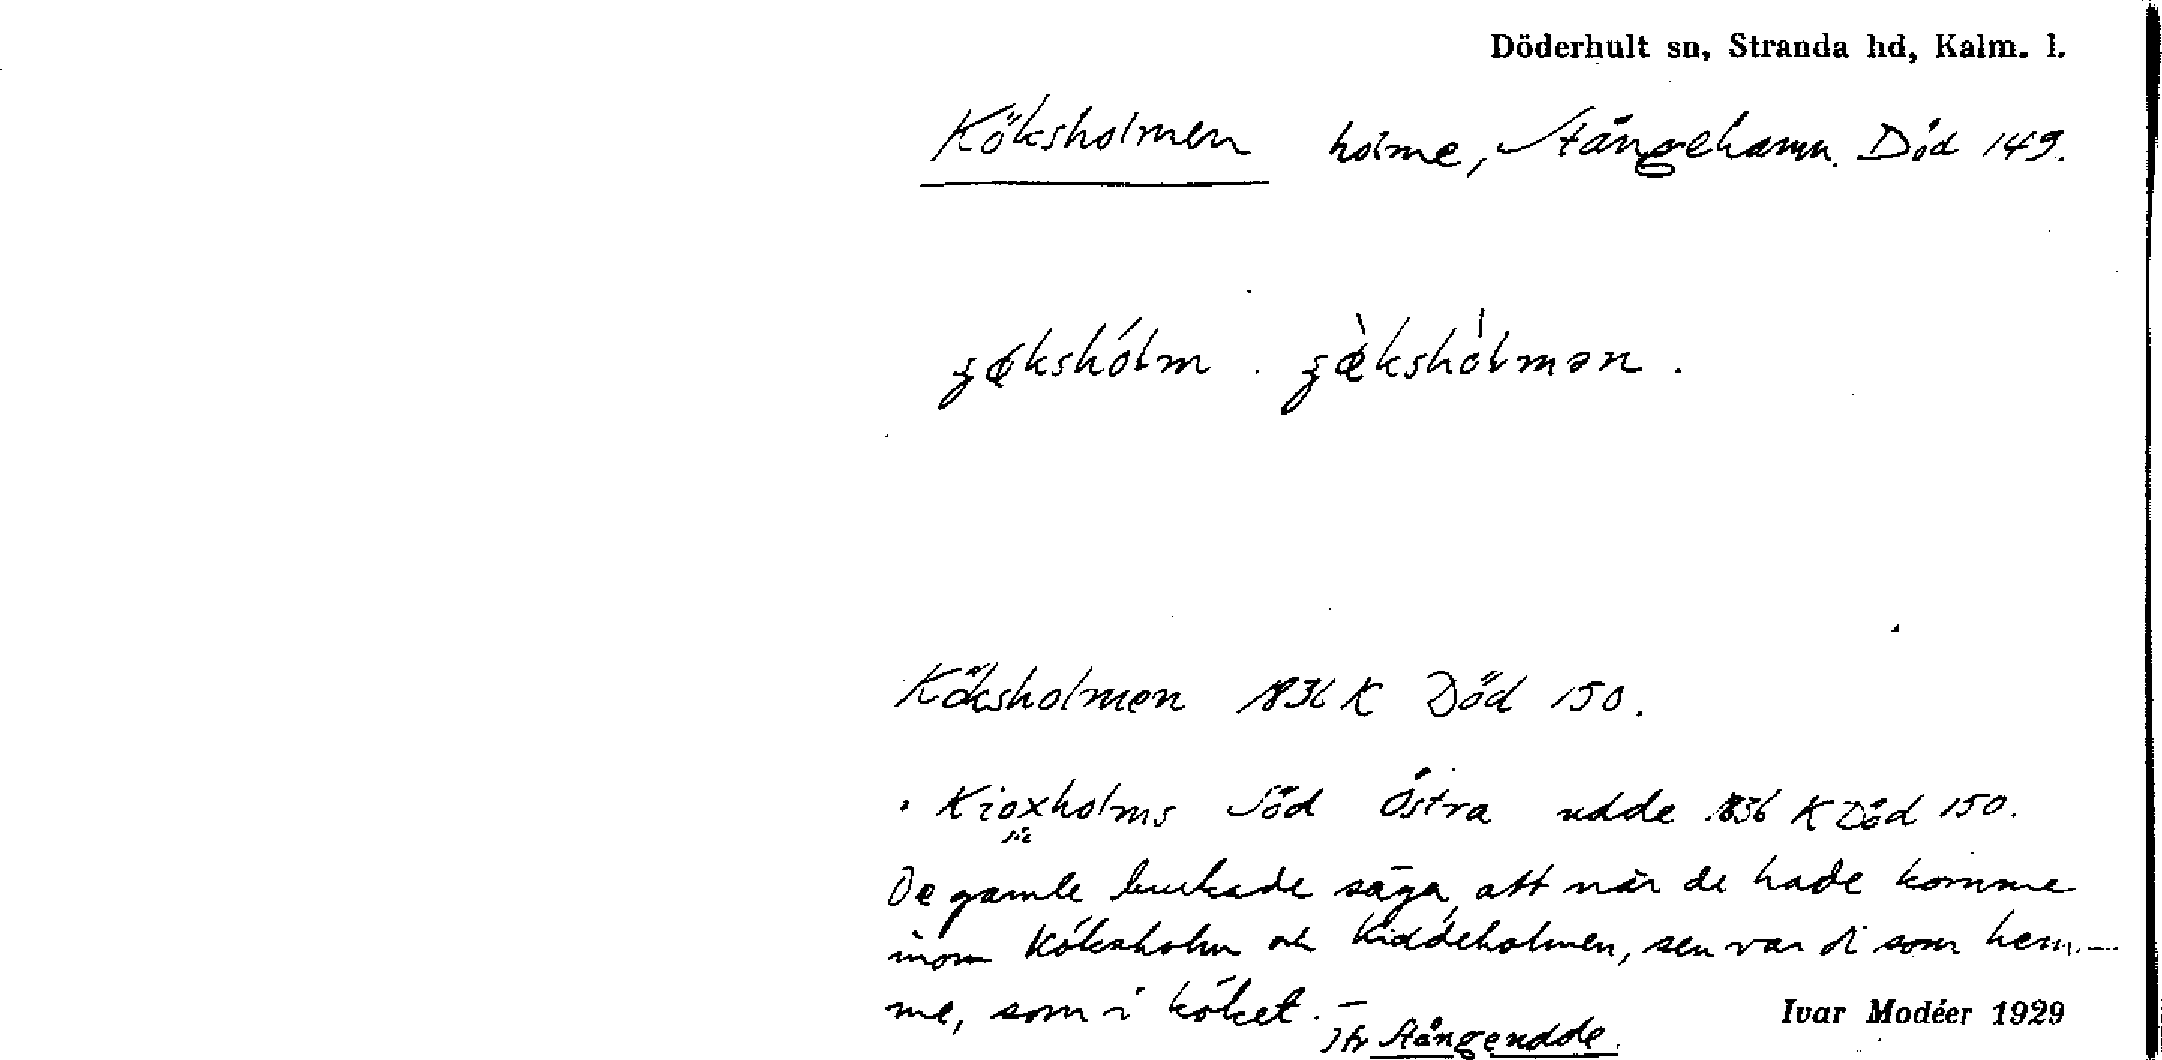 Döderhult sn, Stranda hd, Kalm. l.
Köksholmen holme, Stångehamn. Död 149.
Köksholmen 1836 K Död 150.
Kioxholms Söd Östra udde 1836 K Död 150.
sic
De gamle brukade säga, att när de hade komme
inom Köksholm och Kiddeholmen, sen var di som hem-
me, som i köket. —
Ivar Modéer 1929
Jfr Stångeudde.